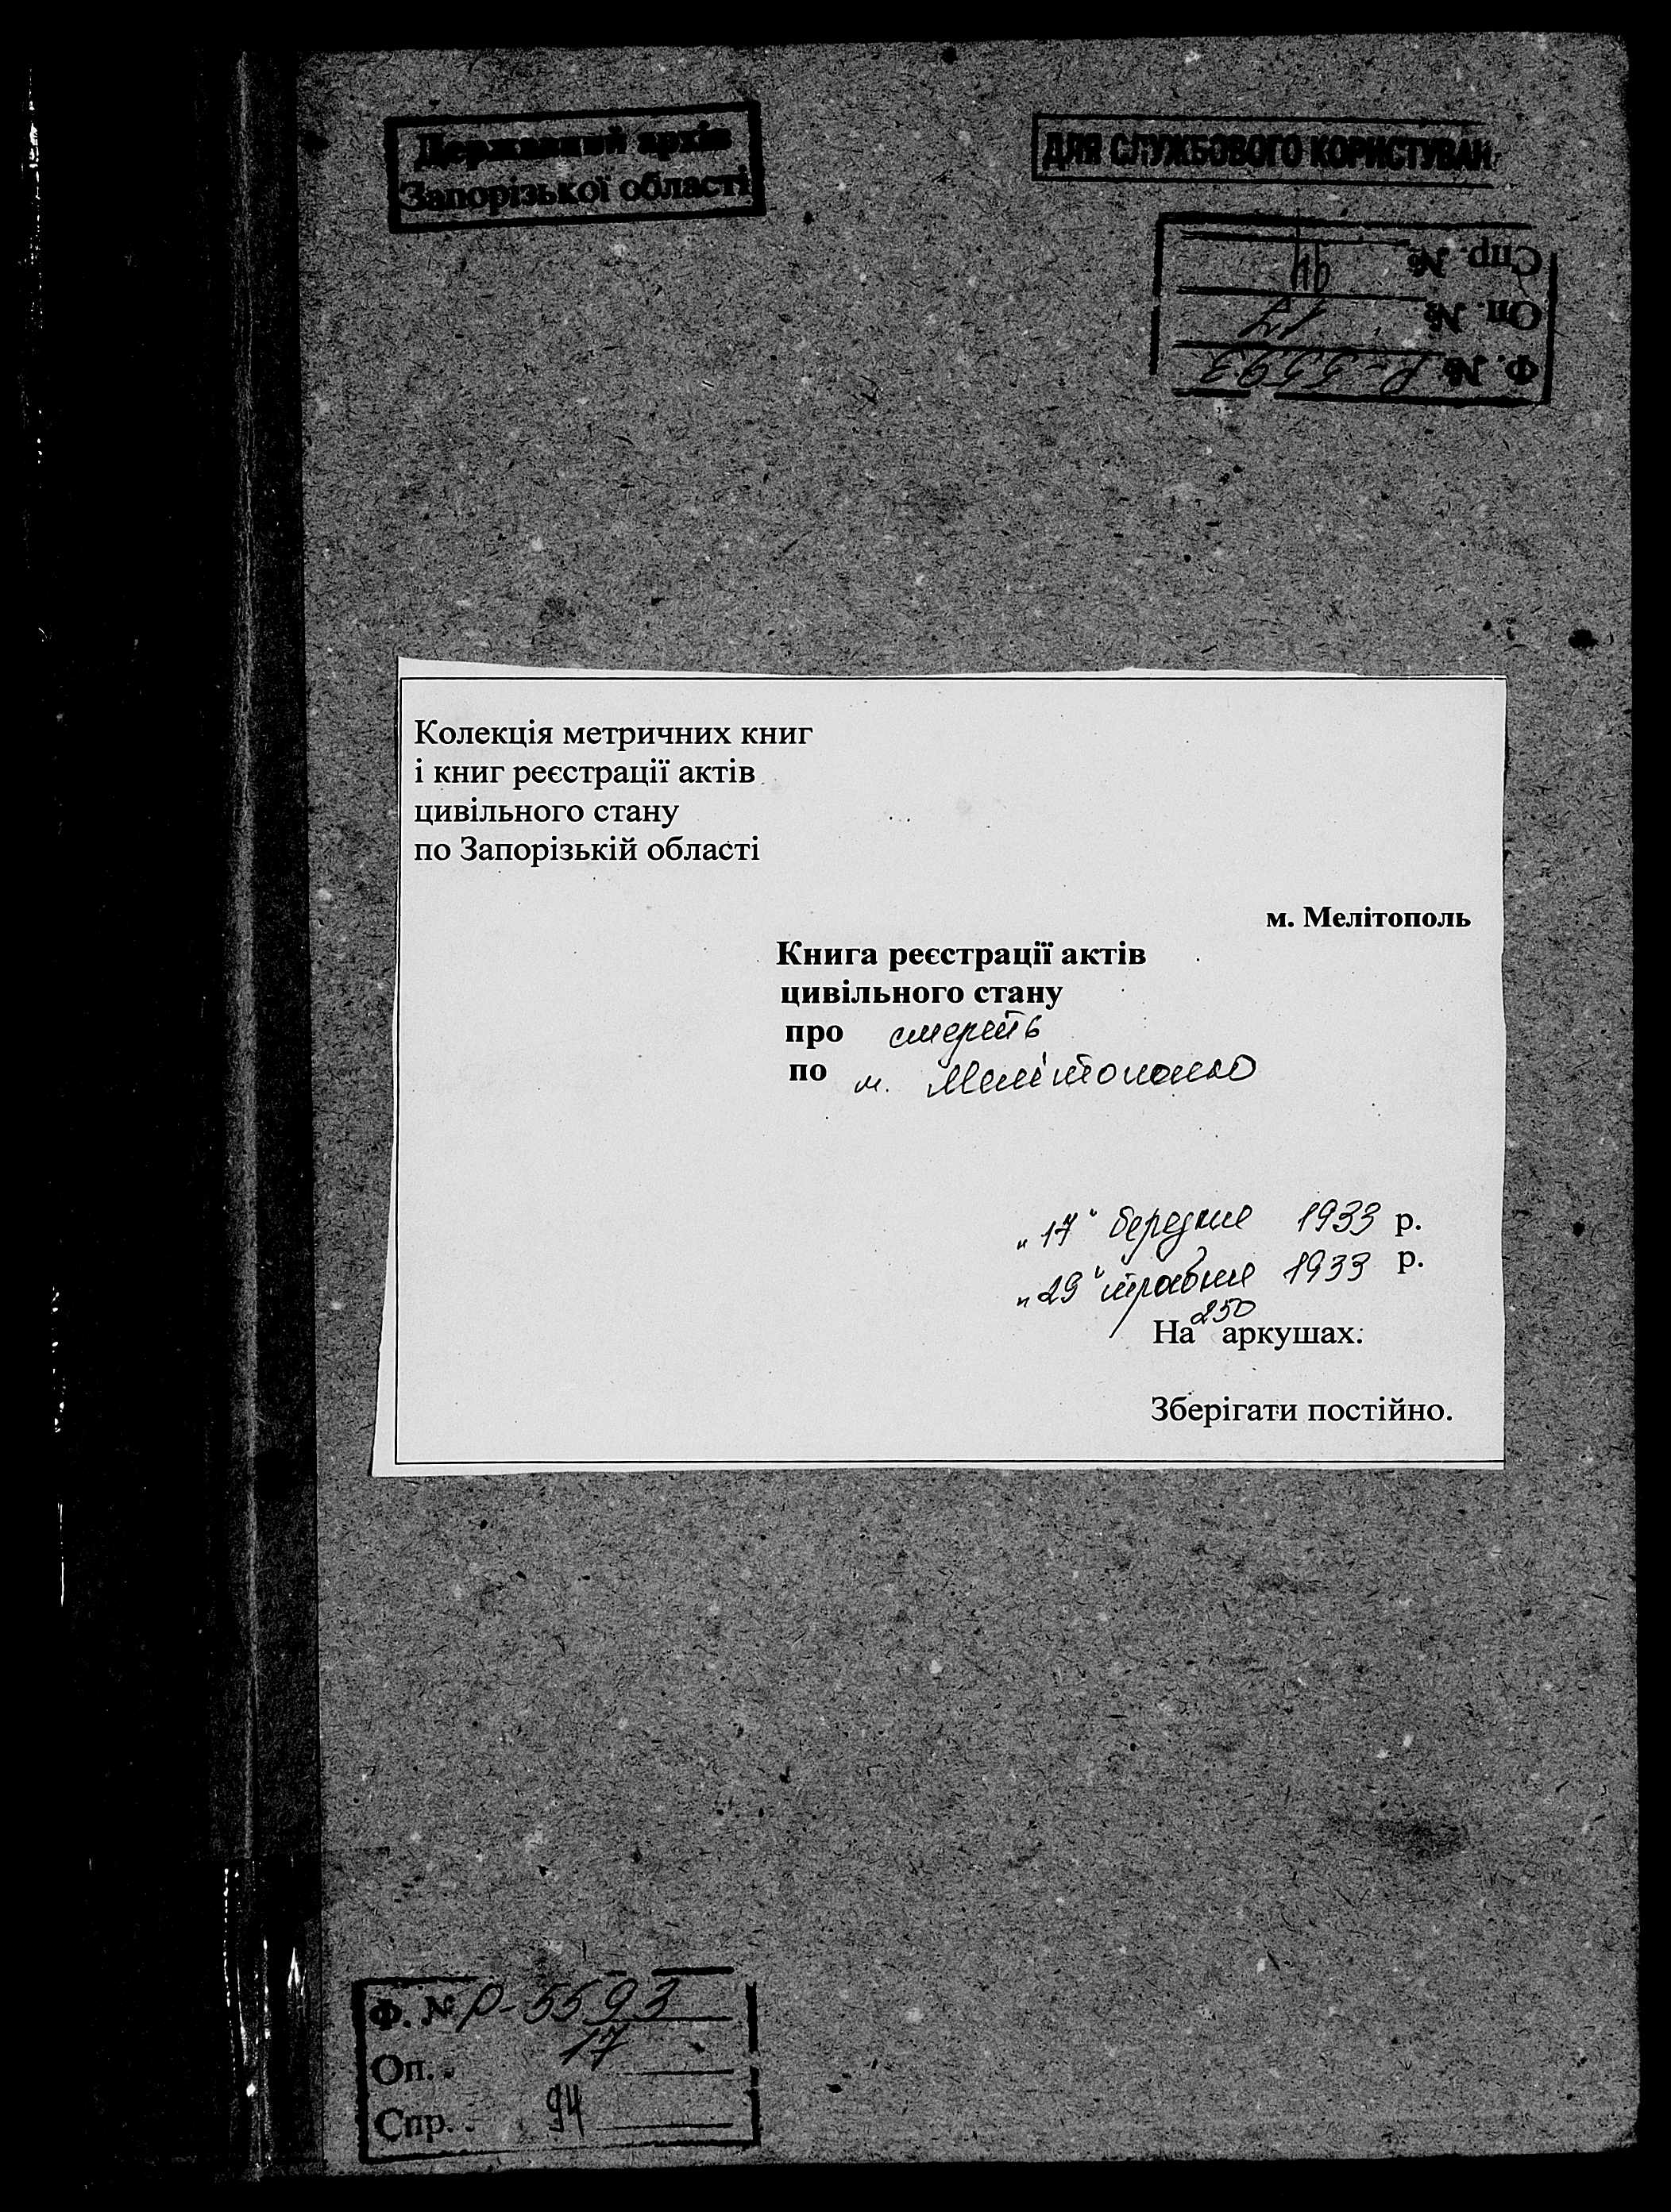 Державний архів
Запорізької області
ДЛЯ СЛУЖБОВОГО КОРИСТУВАН
Ф. № Р-5593
Оп. № 17
Спр. № 94
Колекція метричних книг
і книг реєстрації актів
цивільного стану
по Запорізькій області
м. Мелітополь
Книга реєстрації актів
цивільного стану
про смерть
по м. Мелітополю
"17" березня 1933 р.
"29" травня 1933 р.
На 250 аркушах.
Зберігати постійно.
Ф. № Р-5593
Оп. 17
Спр. 94